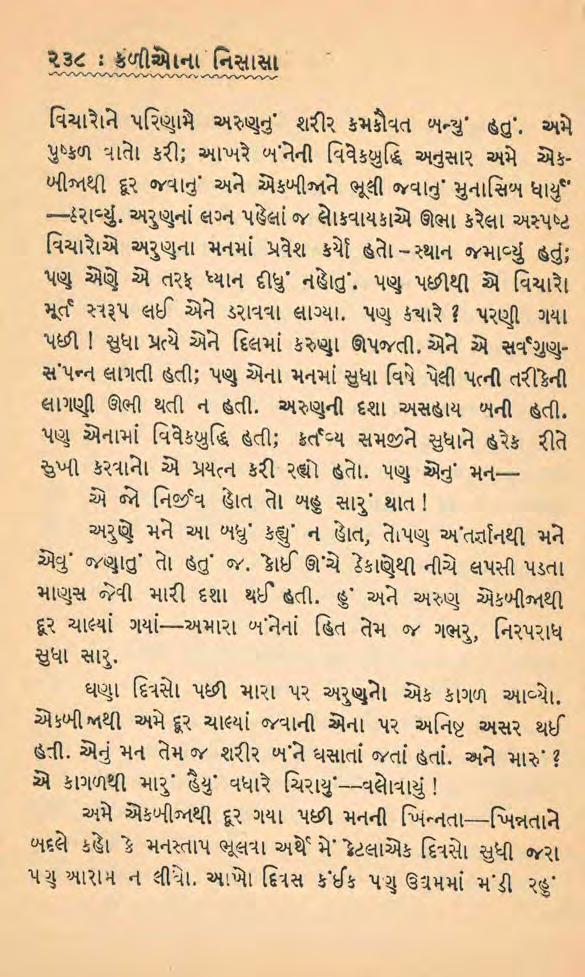 ૨૩૮ : કળીઓના નિસાસા
વિચારોને પરિણામે અરુણનું શરીર કમકૌવત બન્યું હતું. અમે
પુષ્કળ વાતો કરી; આખરે બંનેની વિવેકબુદ્ધિ અનુસાર અમે એક-
બીજાથી દૂર જવાનું અને એકબીજાને ભૂલી જવાનું મુનાસિબ ધાર્યું
—ઠરાવ્યું. અરુણનાં લગ્ન પહેલાં જ લોકવાયકાએ ઊભા કરેલા અસ્પષ્ટ
વિચારોએ અરુણના મનમાં પ્રવેશ કર્યો હતો – સ્થાન જમાવ્યું હતું;
પણ એણે એ તરફ ધ્યાન દીધું નહોતું. પણ પછીથી એ વિચારો
મૂર્ત સ્વરૂપ લઈ એને ડરાવવા લાગ્યા. પણ કયારે ? પરણી ગયા
પછી ! સુધા પ્રત્યે એને દિલમાં કરુણા ઊપજતી. એને એ સર્વગુણ-
સંપન્ન લાગતી હતી; પણ એના મનમાં સુધા વિષે પેલી પત્ની તરીકેની
લાગણી ઊભી થતી ન હતી. અરુણની દશા અસહાય બની હતી.
પણ એનામાં વિવેકબુદ્ધિ હતી; કર્તવ્ય સમજીને સુધાને હરેક રીતે
સુખી કરવાનો એ પ્રયત્ન કરી રહ્યો હતો. પણ એનું મન—
એ જો નિર્જીવ હોત તો બહુ સારું થાત !
અરુણે મને આ બધું કહ્યું ન હોત, તોપણ અંતર્જ્ઞાનથી મને
એવું જણાતું તો હતું જ. કોઈ ઊંચે ઠેકાણેથી નીચે લપસી પડતા
માણસ જેવી મારી દશા થઈ હતી. હું અને અરુણ એકબીજાથી
દૂર ચાલ્યાં ગયાં—અમારા બંનેનાં હિત તેમ જ ગભરુ, નિરપરાધ
સુધા સારુ.
ઘણા દિવસો પછી મારા પર અરુણનો એક કાગળ આવ્યો.
એકબીજાથી અમે દૂર ચાલ્યાં જવાની એના પર અનિષ્ટ અસર થઈ
હતી. એનું મન તેમ જ શરીર બંને ઘસાતાં જતાં હતાં. અને મારું ?
એ કાગળથી મારું હૈયું વધારે ચિરાયું—વલોવાયું !
અમે એકબીજાથી દૂર ગયા પછી મનની ખિન્નતા—ખિન્નતાને
બદલે કહો કે મનસ્તાપ ભૂલવા અર્થે મેં કેટલાએક દિવસો સુધી જરા
પણ આરામ ન લીધો. આખો દિવસ કંઈક પણ ઉદ્યમમાં મંડી રહું